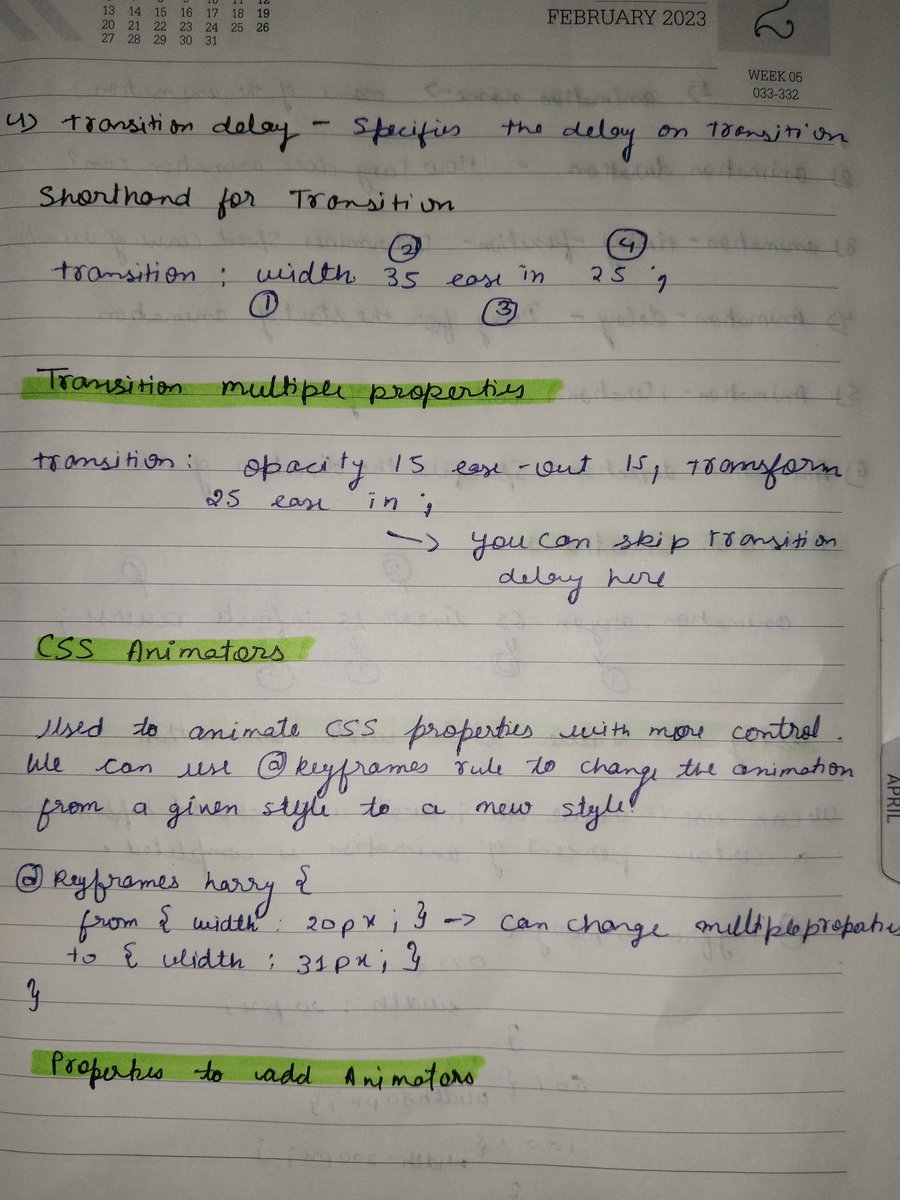 12
13 14 15 16 17 18 19
20 21 22 23 24 25 26
27 28 29 30 31
FEBRUARY 2023
2
WEEK 05
033-332
4) transition delay - Specifies the delay on transition
Shorthand for Transition
② ④
transition : width 3s ease in 2s ;
① ③
Transition multiple properties
transition : opacity 1s ease-out 1s, transform
2s ease in ;
-> you can skip transition
delay here
CSS Animators
Used to animate CSS properties with more control .
We can use @keyframes rule to change the animation
from a given style to a new style!
@ Keyframes harry {
from { width : 20px ; } -> can change multiple propaties
to { width : 31px ; }
}
APRIL
Properties to add Animators